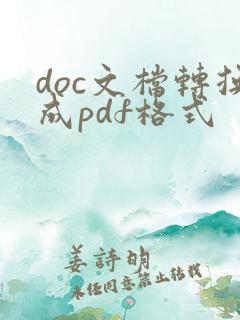 doc文檔轉換
成pdf格式
姜詩明
未经同意禁止转载